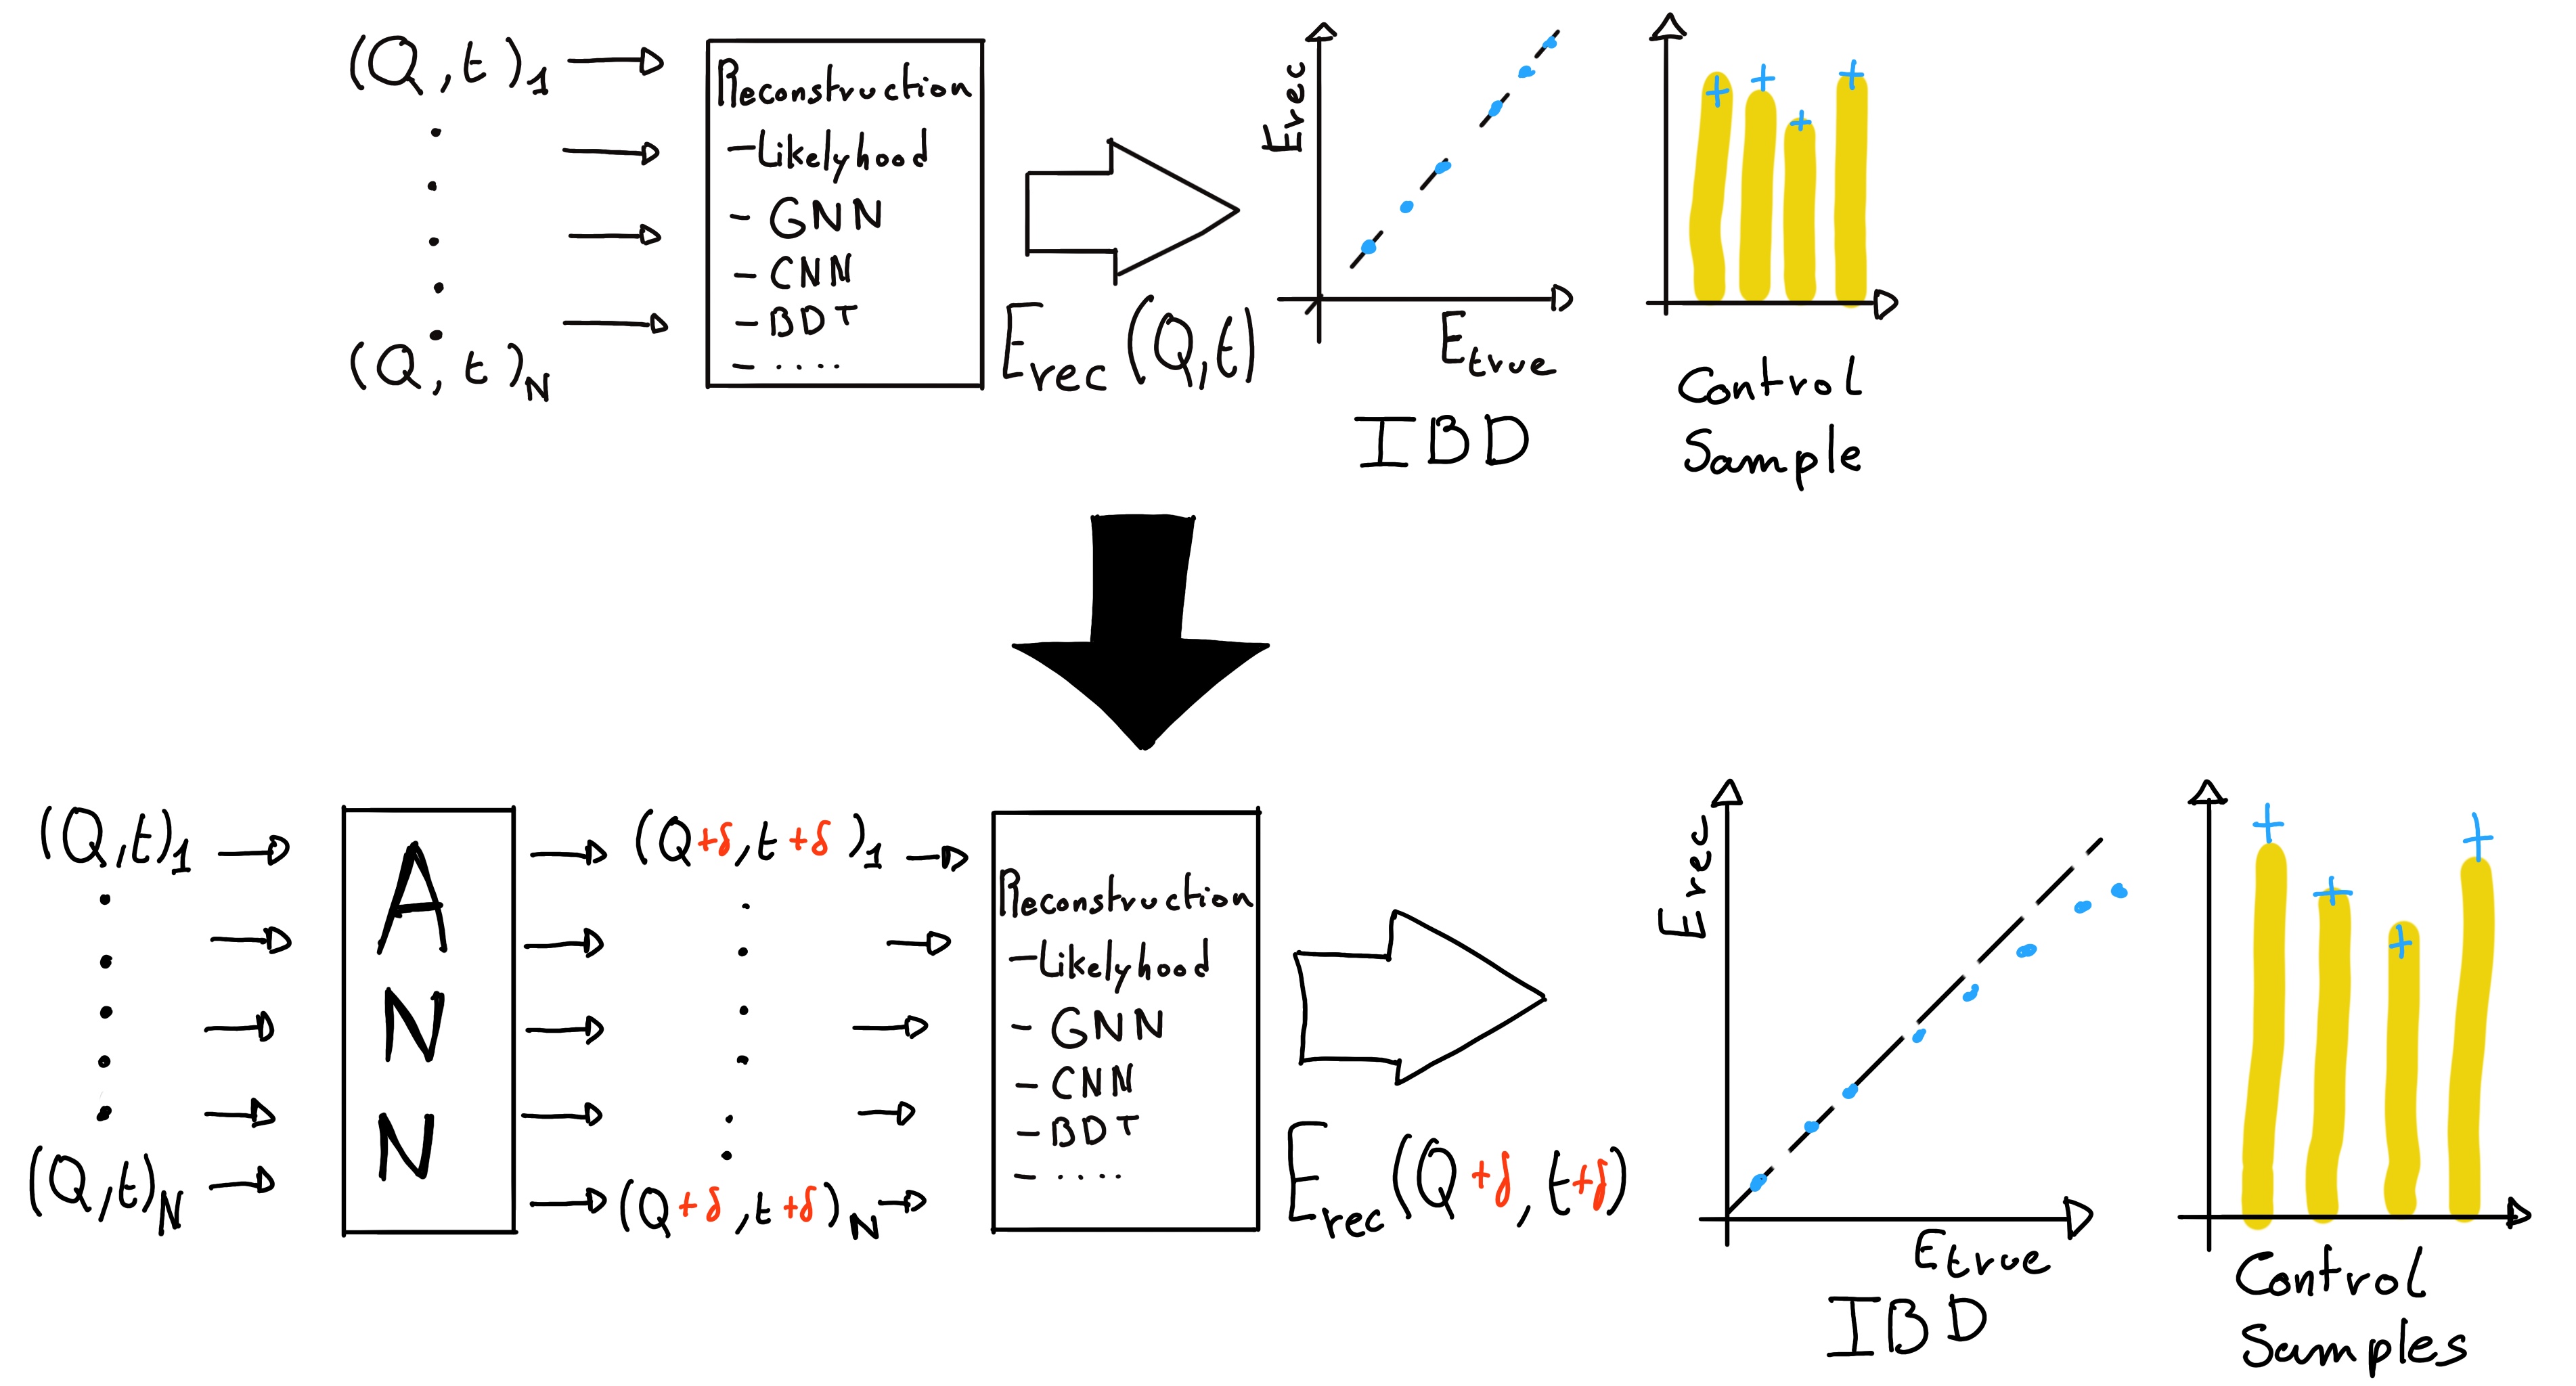 (Q,t)1
(Q,t)N
Reconstruction
-Likelyhood
- GNN
- CNN
- BDT
- ....
Erec (Q,t)
Erec
Etrue
IBD
Control
Sample
(Q,t)1
(Q,t)N
A
N
N
(Q+δ,t+δ)1
(Q+δ,t+δ)N
Reconstruction
-Likelyhood
- GNN
- CNN
- BDT
- ....
Erec (Q+δ,t+δ)
Erec
Etrue
IBD
Control
Samples